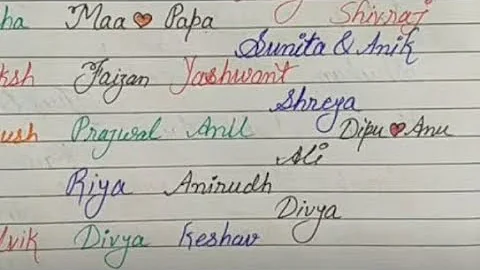 ha Maa Papa Shivraj
Sunita & Anik
ksh Faizan Yashwant
Shreya
ush Prajwal Anil Dipu Anu
Ali
Riya Anirudh
Divya
vik Divya Keshav